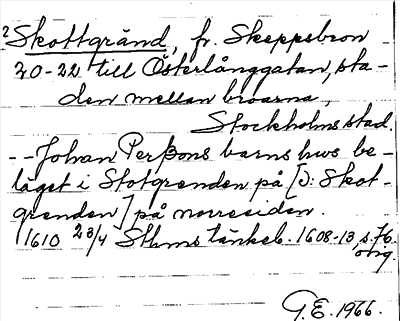 2 Skottgränd, fr. Skeppsbron
20-22 till Österlånggatan, sta-
den mellan broarna,
Stockholms stad.
--Johan Perßons barns hws be-
läget i Stotgrenden på [ɔ: Skot-
grenden] på norresiden.
1610 23/4 Sthms tänkeb. 1608-13, s. 76.
orig.
G.E. 1966.